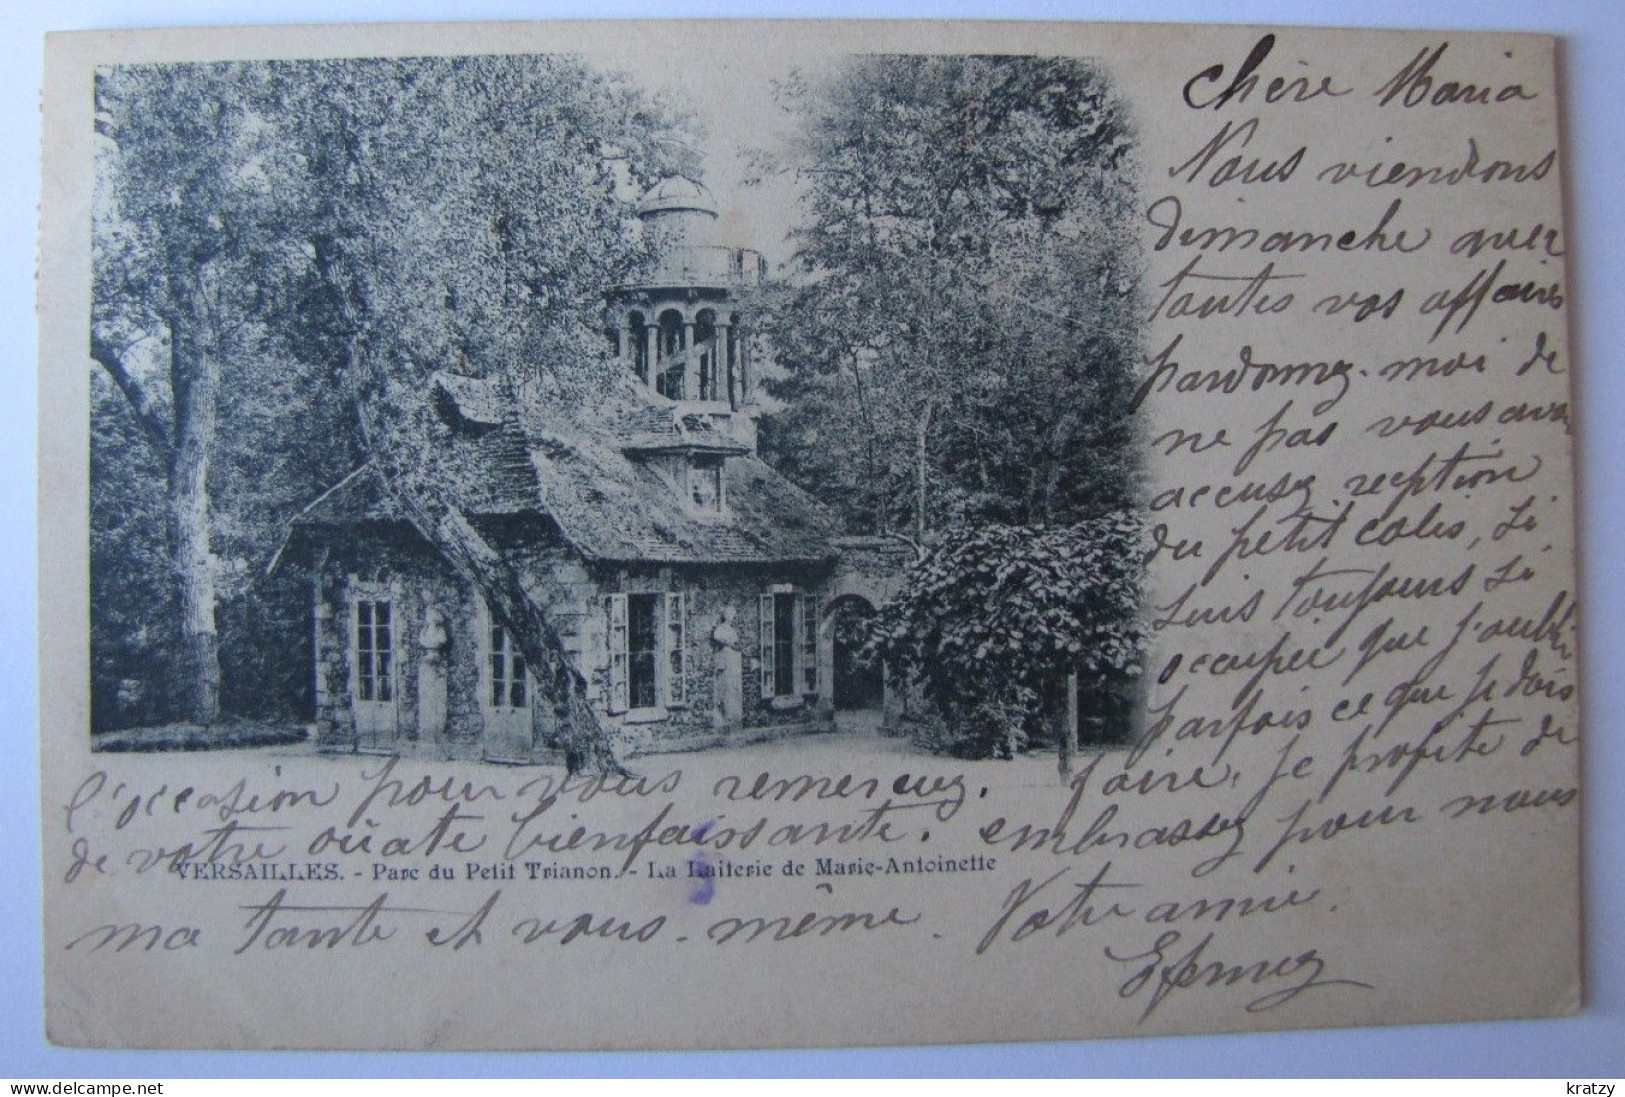 Chère Maria
Nous viendrons
dimanche avec
toutes vos affaires
pardonnez-moi de
ne pas vous avoir
accusez reception
du petit colis, si
suis toujours si
occupée que j'oublie
parfois ce que je dois
faire. Je profite de
l'occasion pour vous remerciez.
de votre oüate bienfaissante. embrassez pour nous
ma tante et vous-même. Votre amie.
VERSAILLES. - Parc du Petit Trianon. - La Laiterie de Marie-Antoinette
kratzy